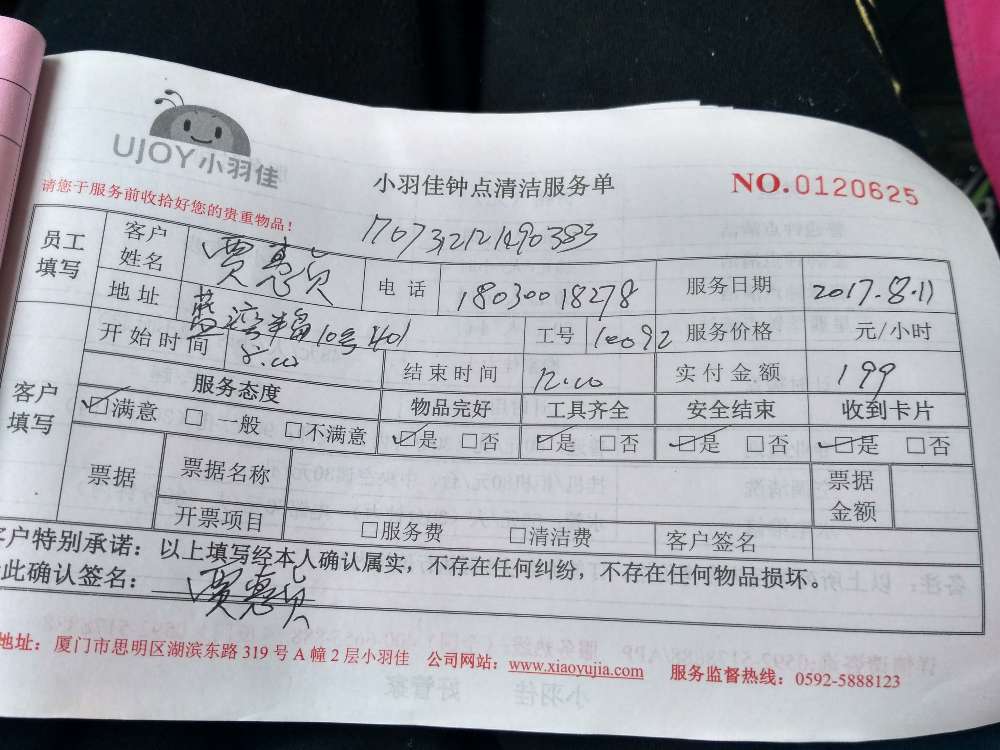 UJOY小羽佳
小羽佳钟点清洁服务单
NO.0120625
请您于服务前收拾好您的贵重物品!
员工填写 客户姓名 贾惠贞 电话 18030018278 服务日期 2017.8.11
地址 10号401 工号 10092 服务价格 元/小时
开始时间 8:00 结束时间 12:00 实付金额 199
客户填写 服务态度 物品完好 工具齐全 安全结束 收到卡片
☑满意 □一般 □不满意 ☑是 □否 ☑是 □否 ☑是 □否 ☑是 □否
票据 票据名称 票据金额
开票项目 □服务费 □清洁费 客户签名
客户特别承诺：以上填写经本人确认属实，不存在任何纠纷，不存在任何物品损坏。
此确认签名： 贾惠贞
地址：厦门市思明区湖滨东路 319 号 A 幢 2 层小羽佳 公司网站：www.xiaoyujia.com 服务监督热线：0592-5888123